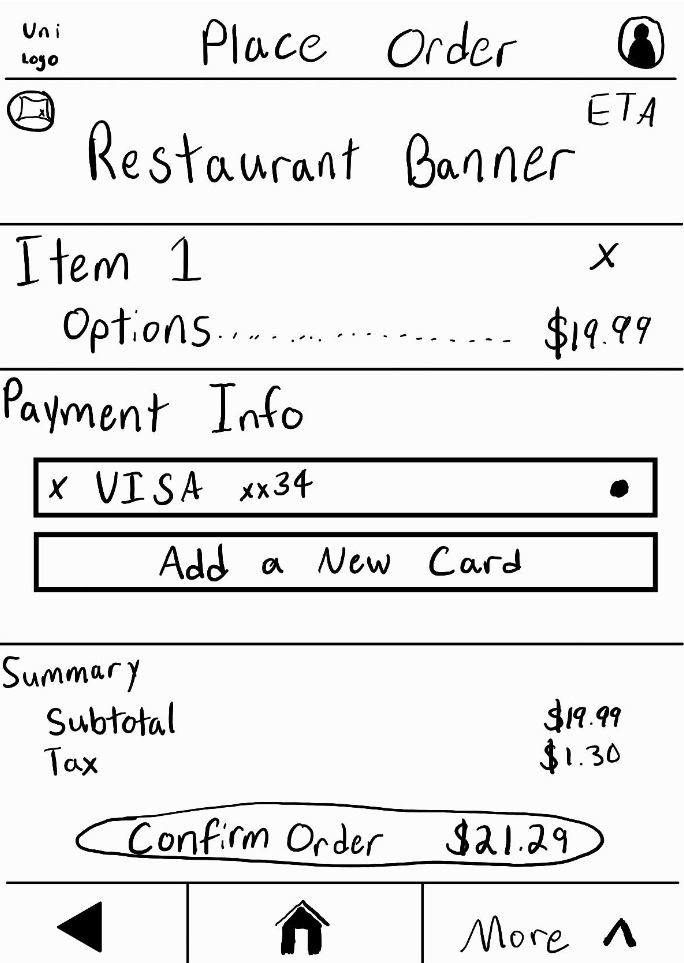 Uni
Logo
Place Order
ETA
Restaurant Banner
Item 1 x
Options.................... $19.99
Payment Info
x VISA xx34
Add a New Card
Summary
Subtotal $19.99
Tax $1.30
Confirm Order $21.29
More ^